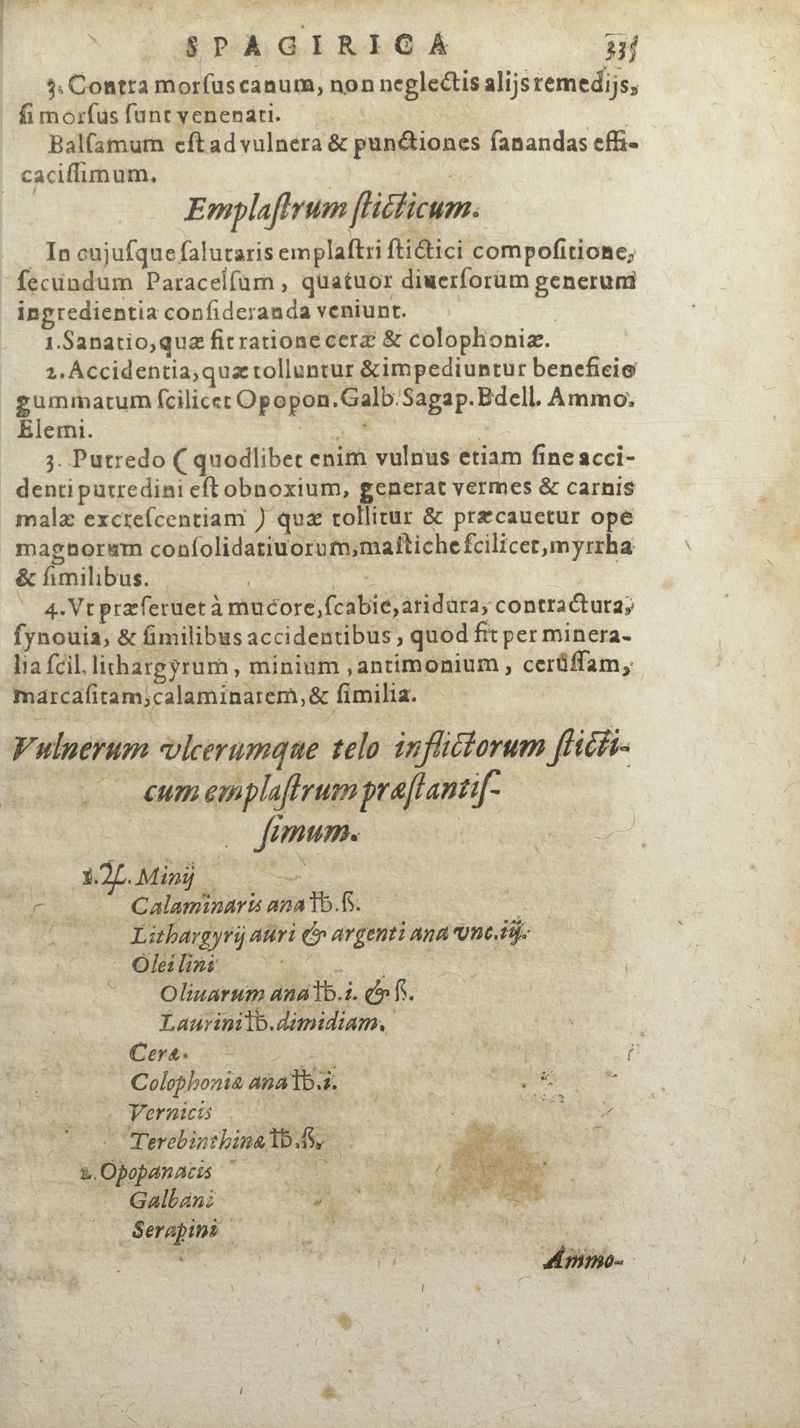 SPAGIRICA 335
3. Contra morſus canum, non neglectis alijs remedijs,
ſi morſus ſunt venenati.
Balſamum eſt ad vulnera & punctiones ſanandas effi-
caciſſimum.
Emplaſtrum ſticticum.
In cujuſque ſalutaris emplaſtri ſtictici compoſitione,
ſecundum Paracelſum, quatuor diuerſorum generum
ingredientia conſideranda veniunt.
1. Sanatio, quæ fit ratione ceræ & colophoniæ.
2. Accidentia, quæ tolluntur & impediuntur beneficio
gummatum ſcilicet Opopon. Galb. Sagap. Bdell. Ammo.
Elemi.
3. Putredo (quodlibet enim vulnus etiam ſine acci-
denti putredini eſt obnoxium, generat vermes & carnis
malæ excreſcentiam) quæ tollitur & præcauetur ope
magnorum conſolidatiuorum, maſtiche ſcilicet, myrrha
& ſimilibus.
4. Vt præſeruet à mucore, ſcabie, aridura, contractura,
ſynouia, & ſimilibus accidentibus, quod fit per minera-
lia ſcil. lithargyrum, minium, antimonium, ceruſſam,
marcaſitam, calaminarem, & ſimilia.
Vulnerum vlcerumque telo inflictorum ſticti-
cum emplaſtrum præſtantiſ-
ſimum.
1. ℞. Minij
Calaminaris ana ℔.ß.
Lithargyrij auri & argenti ana vnc.iij.
Olei lini
Oliuarum ana ℔.i. & ß.
Laurini ℔. dimidiam.
Ceræ.
Colophoniæ ana ℔.i.
Vernicis
Terebinthinæ ℔.ß.
2. Opopanacis
Galbani
Serapini
Ammo-